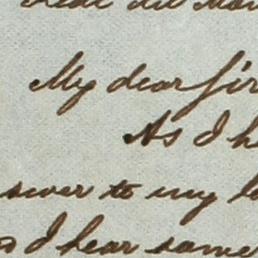 My dear sir
As I h
swer to my l
I hear some